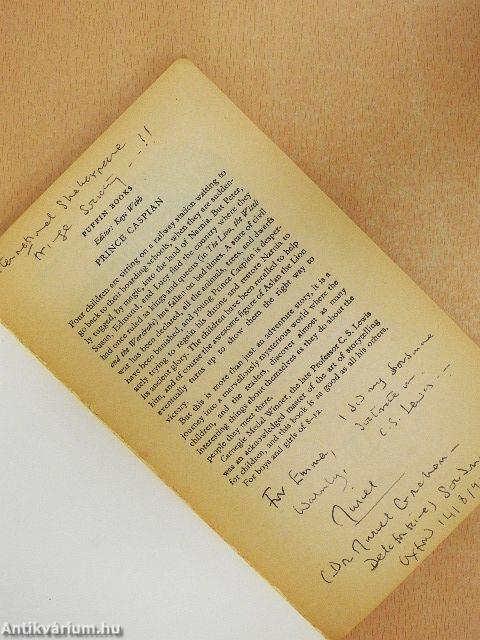 International Shakespeare
Fringe Society --!!
PUFFIN BOOKS
Editor: Kaye Webb
PRINCE CASPIAN
Four children are sitting on a railway station waiting to
go back to their boarding schools, when they are sudden-
ly tugged, by magic, into the land of Narnia. But Peter,
Susan, Edmund and Lucy find the country where they
had once ruled as kings and queens (in The Lion, the Witch
and the Wardrobe), has fallen on bad times. A state of civil
war has been declared, all the animals, trees, and dwarfs
have been banished, and young Prince Caspian is desper-
ately trying to regain his throne and restore Narnia to
its ancient glory. The children have been recalled to help
him, and of course the awesome figure of Aslan the Lion
eventually turns up to show them the right way to
victory.
But this is more than just an adventure story, it is a
journey into a marvellously mysterious world where the
children, and the reader, discover almost as many
interesting things about themselves as they do about the
people they meet there.
Carnegie Medal Winner, the late Professor C. S. Lewis
was an acknowledged master of the art of storytelling
for children, and this book is as good as all his others.
For boys and girls of 8-12.
I did my
on
C.S. Lewis --
For Emma,
Warmly,
Muriel
(Dr. Muriel Graham -
Antikvárium.hu